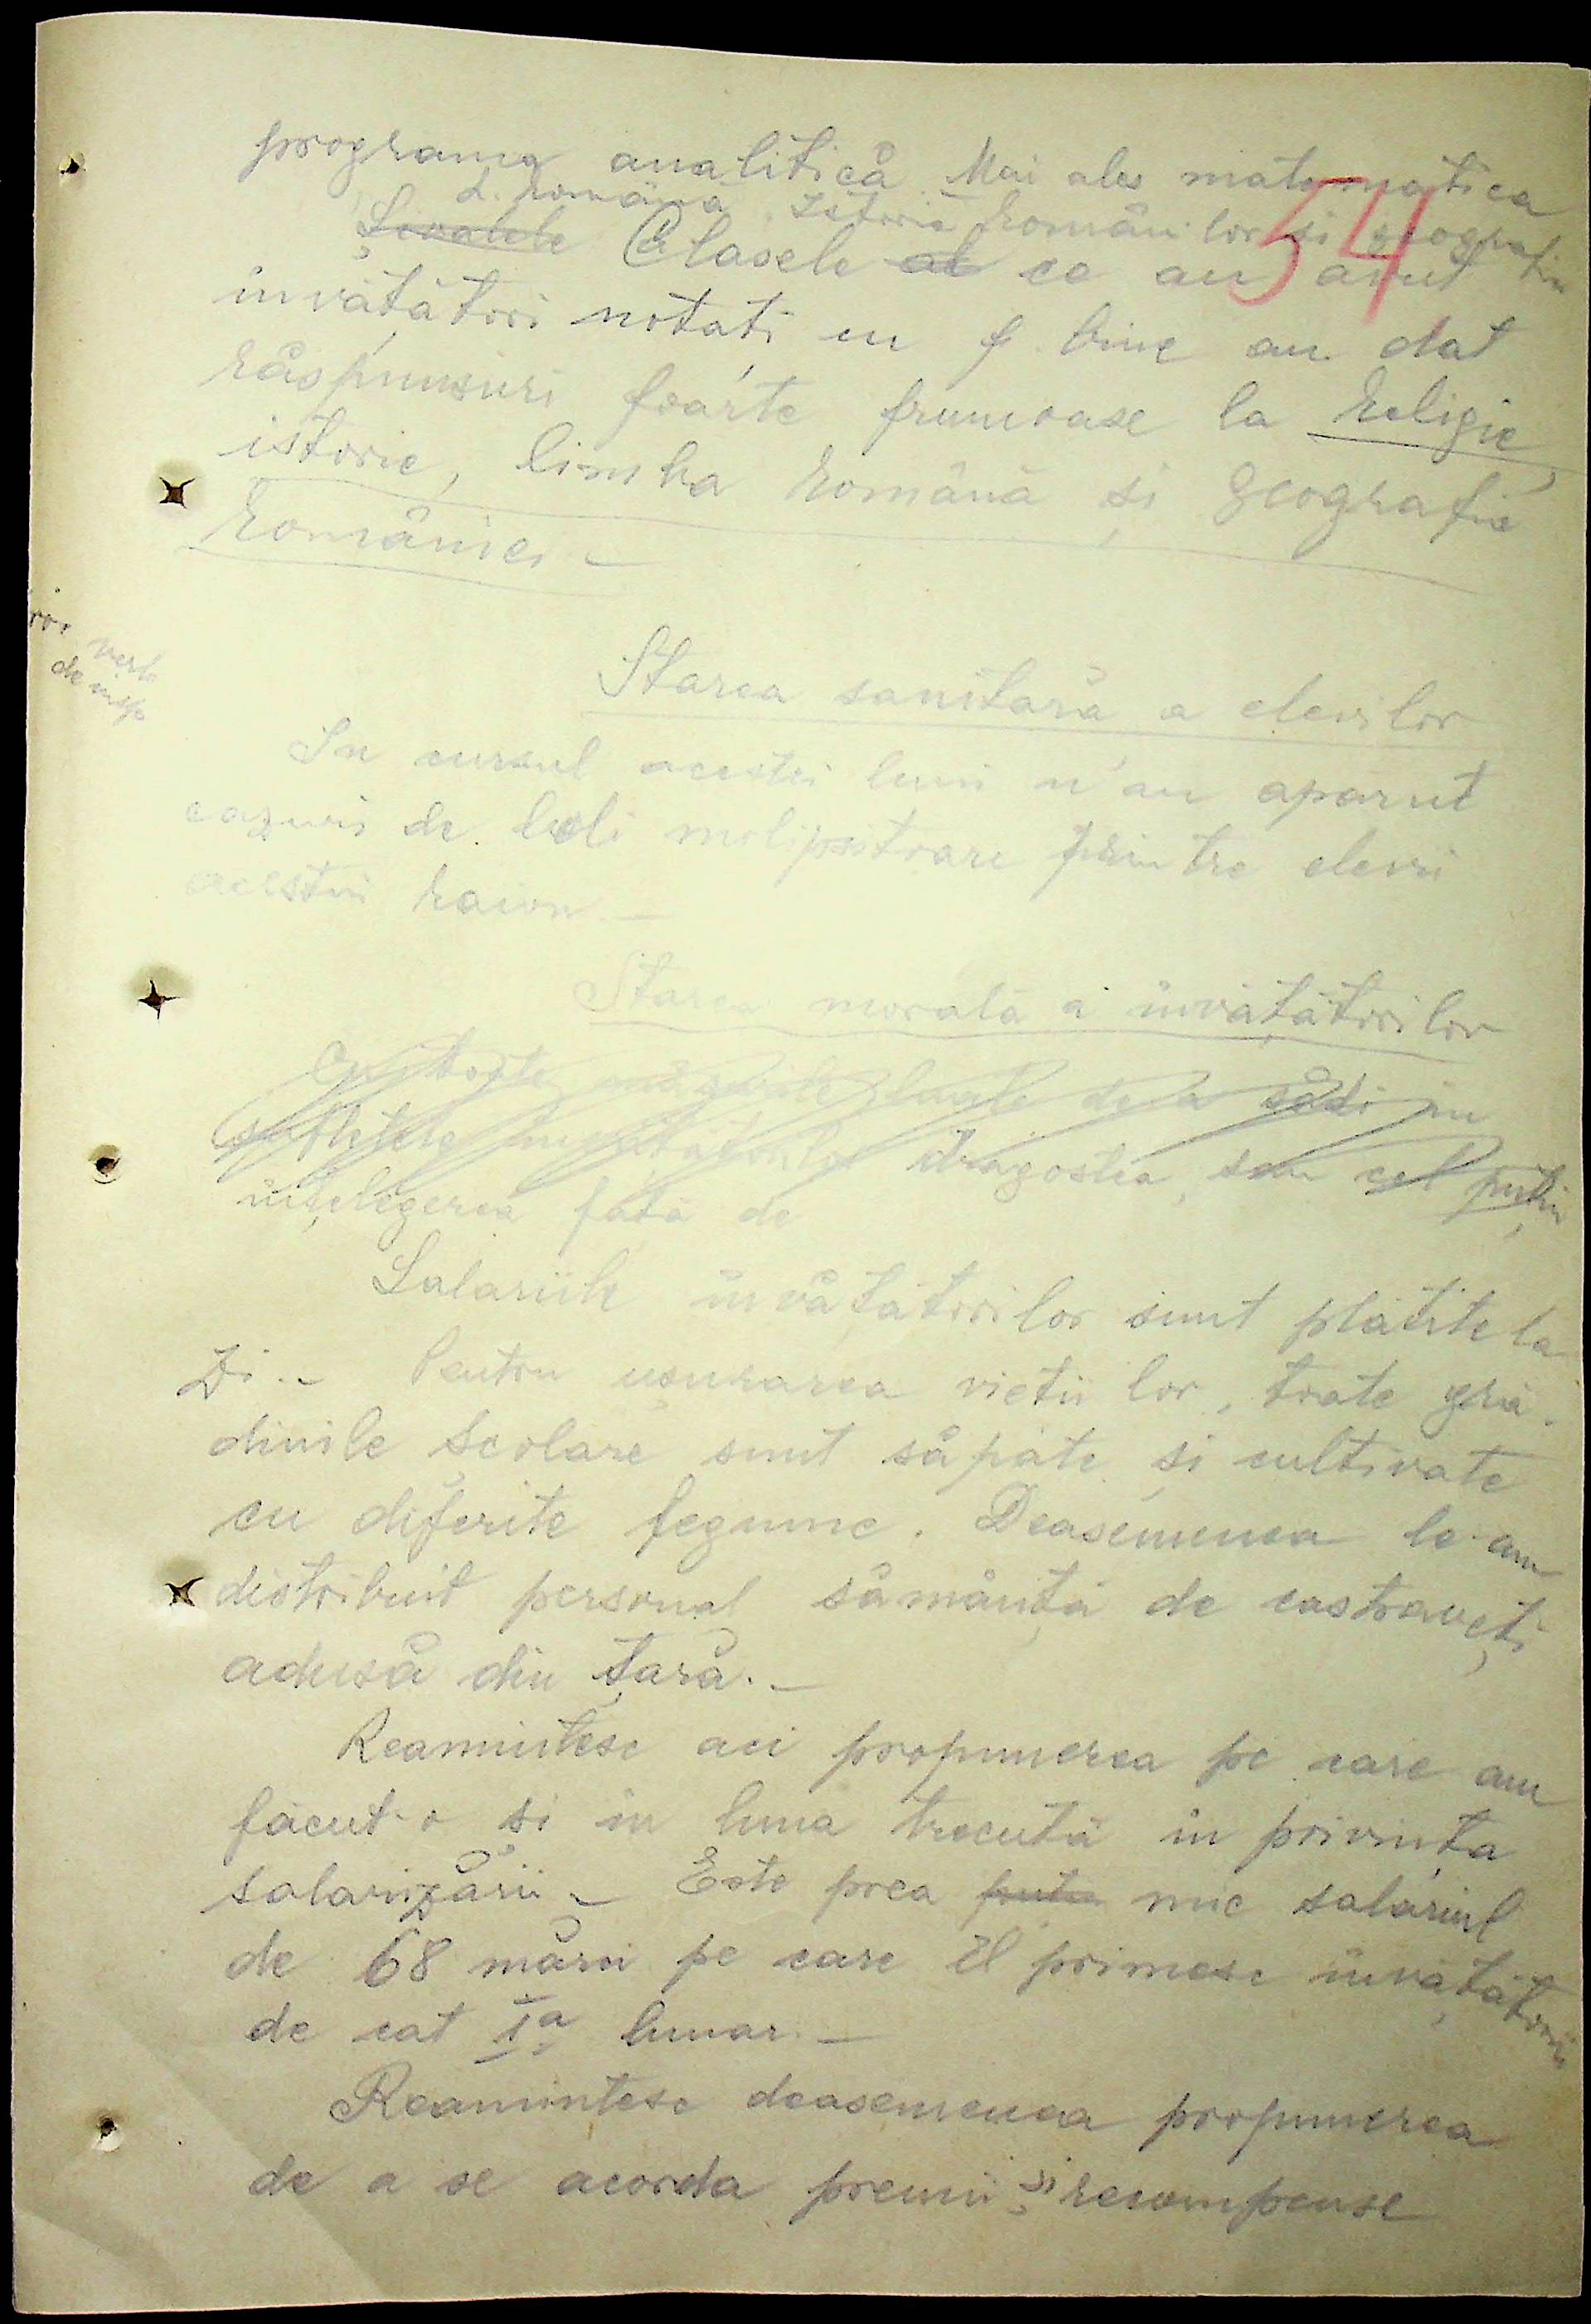 programa analitică Mai ales matematica
L. Română Istoria Românilor și geografia
54
Școalele Clasele al ce au avut
învățători notați cu f. bine au dat
răspunsuri foarte frumoase la Religie,
istorie, limba Română și geografia
României –
verb
de insp
Starea sanitară a elevilor
In cursul acestei luni n'au aparut
cazuri de boli molipsitoare printre elevii
acestui raion. –
Starea morală a învățătorilor
Cu toate măsurile luate de a sădi in
sufletele învățătorilor dragostea, sau cel puțin
ințelegerea fată de
Salariile învățătorilor sunt plătite la
zi. – Pentru ușurarea vietii lor, toate gră-
dinile scolare sunt săpate și cultivate
cu diferite legume. Deasemenea le-am
distribuit personal sămânță de castraveți
adusă din țară. –
Reamintesc aci propunerea pe care am
făcut-o si în luna trecută în privința
salarizării – Este prea mic salariul
de 68 mărci pe care il primesc învățătorii
de cat Ia lunar. –
Reamintesc deasemenea propunerea
de a se acorda premii și recompense